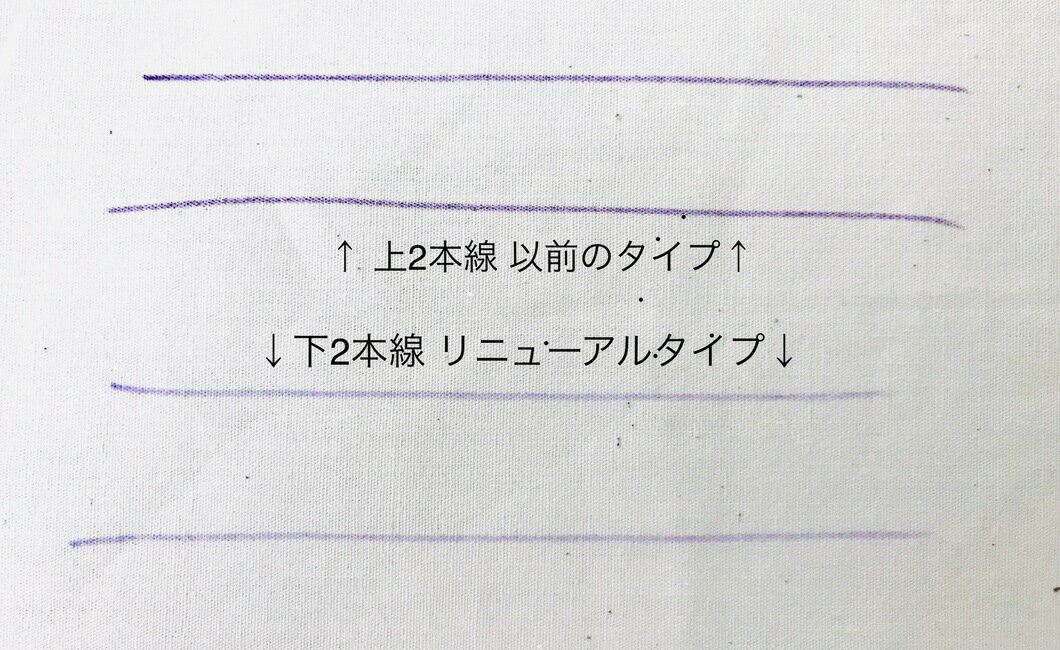 ↑ 上2本線 以前のタイプ↑
↓下2本線 リニューアルタイプ↓